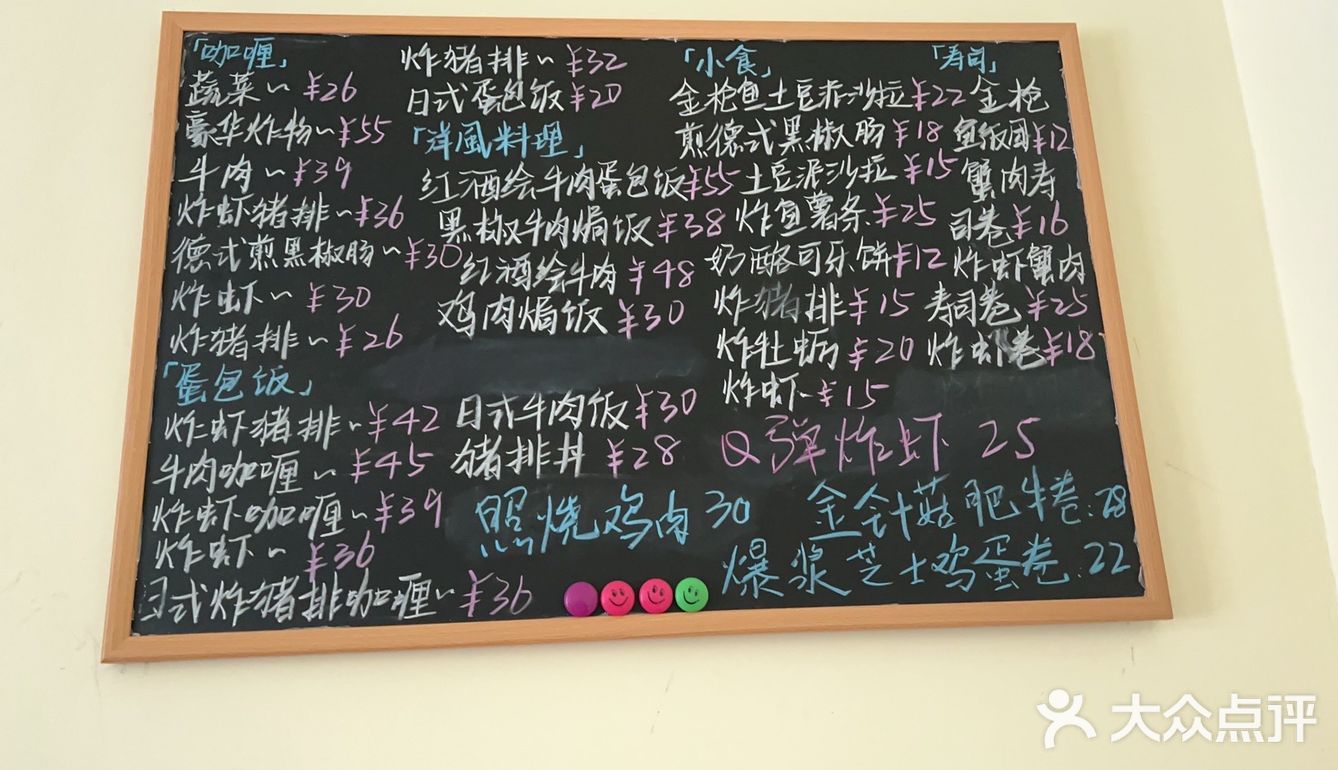 「咖喱」
蔬菜~ ¥26
豪华炸物~¥55
牛肉~¥39
炸虾猪排~¥36
德式煎黑椒肠~¥30
炸虾~ ¥30
炸猪排~¥26
「蛋包饭」
炸虾猪排~¥42
牛肉咖喱~¥45
炸虾咖喱~¥39
炸虾~ ¥36
日式炸猪排咖喱~¥36
炸猪排~ ¥32
日式蛋包饭¥20
「洋風料理」
红酒绘牛肉蛋包饭¥55
黑椒牛肉焗饭¥38
红酒绘牛肉¥48
鸡肉焗饭¥30
日式牛肉饭¥30
猪排丼 ¥28
照烧鸡肉30
「小食」
金枪鱼土豆泥沙拉¥22
煎德式黑椒肠¥18
土豆泥沙拉¥15
炸鱼薯条¥25
奶酪可乐饼¥12
炸猪排¥15
炸牡蛎¥20
炸虾¥15
「寿司」
金枪
鱼饭团¥12
蟹肉寿
司卷¥16
炸虾蟹肉
寿司卷¥25
炸虾卷¥18
Q弹炸虾 25
金针菇肥牛卷:28
爆浆芝士鸡蛋卷:22
大众点评